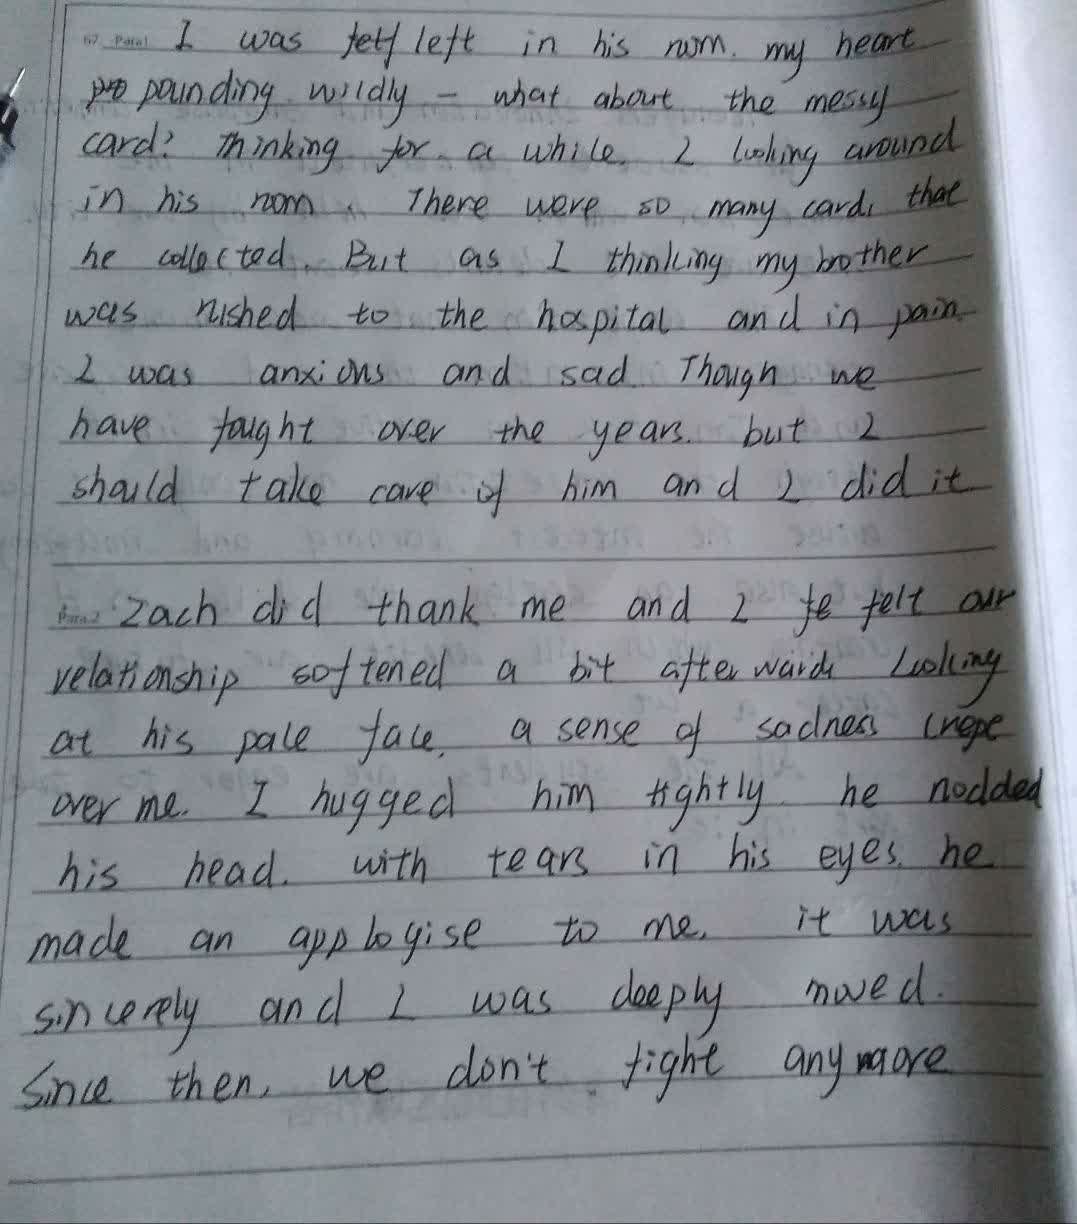 67. Para1 I was left in his room. my heart
pounding wildly – what about the messy
card? Thinking for a while. I looking around
in his room. There were so many cards that
he collected. But as I thinking my brother
was rushed to the hospital and in pain
I was anxious and sad. Though we
have fought over the years. but I
should take care of him and I did it
Para2 Zach did thank me and I felt our
relationship softened a bit afterwards Looking
at his pale face, a sense of sadness crepe
over me. I hugged him tightly. he nodded
his head. with tears in his eyes, he
made an applogise to me, it was
sincerely and I was deeply moved.
Since then, we don't fight anymore